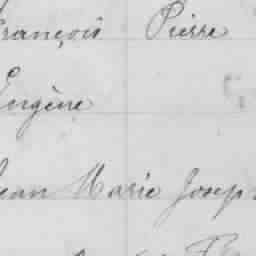 François Pierre
Eugène
Jean Marie Joseph